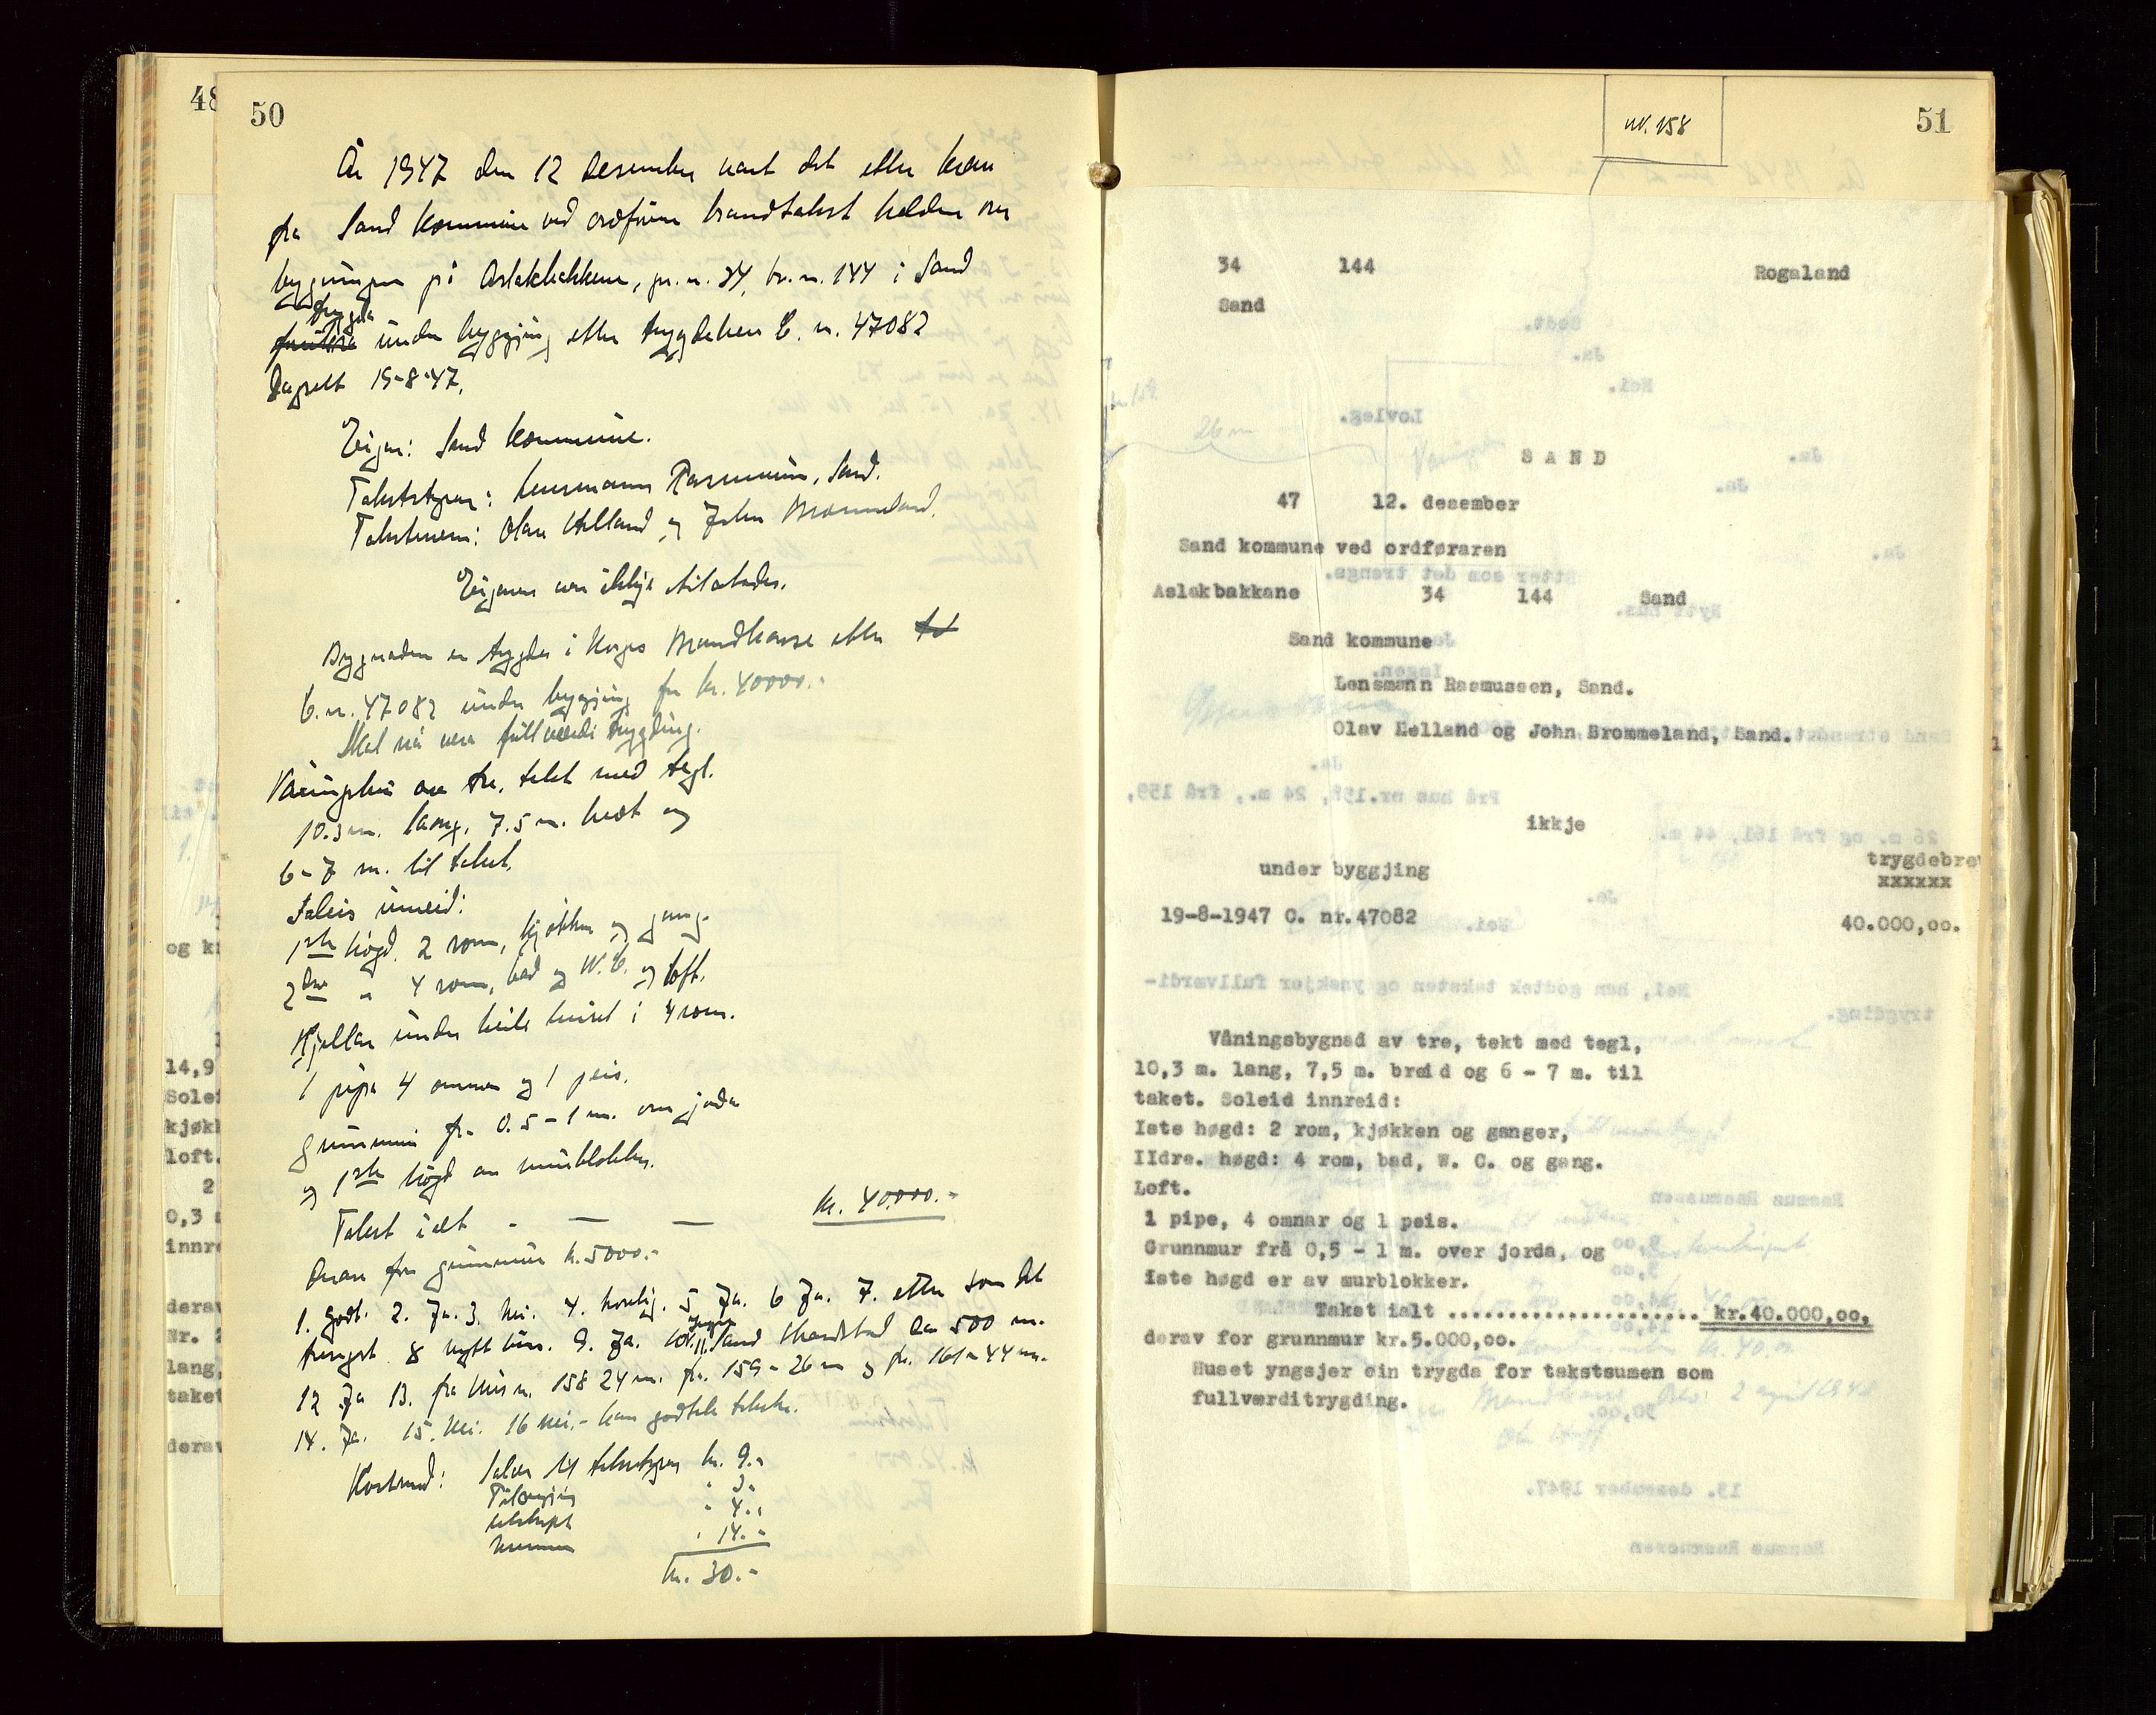 48
50
År 1947 den 12 desember vart det etter krav
frå Sand kommune ved ordførar brandtakst halden over
bygningen på Aslakbakkane, gr. n. 34, br. n. 144 i Sand
trygda
under byggjing etter trygdebrev C. n. 47082
Dagsett 19-8-47.
Eigar: Sand kommune.
Takststyrar: Lensmann Rasmussen, Sand.
Takstmenn: Olav Helland og John Brommeland.
Eigaren var ikkje tilstades.
Bygnaden er trygda i Norges Brandkasse etter
C. n. 47082 under byggjing for kr. 40000.-
Skal nå vera fullverdi trygding.
Våningshus av tre, tekt med tegl.
10.3 m. lang, 7.5 m. breit og
6-7 m. til taket.
Soleis innreid:
1ste høgd. 2 rom, kjøkken og gang.
2dre " 4 rom, bad og W.C. og loft.
Kjellar under heile huset i 4 rom.
1 pipe 4 omnar og 1 peis.
Grunnmur frå 0.5 - 1 m. over jorda
og 1ste høgd av murblokker.
Takst ialt - — — kr. 40000.-
Derav for grunnmur kr. 5000.-
1. godt. 2. Ja. 3. Nei. 4. Lovleg. 5 Ja. 6 Ja. 7. etter som det
trengst 8 nytt hus. 9. Ja. 10. Ingen 11. Sand strandstad ca 500 m.
12 Ja 13. frå hus n. 158 24 m. frå 159 - 26 m og frå 161 - 44 m.
14. Ja. 15. Nei. 16 Nei. - han godtek taksten.
Kostnad: Salær til takststyrar kr. 9.-
" 3.-
" 4.-
" 14.-
kr. 30.-
og kj
14,9
Solei
kjøkk
loft.
2
0,3
innre
derav
Nr.
lang,
taket
derav
nr. 158
51
34 144 Rogaland
Sand
SAND
47 12. desember
Sand kommune ved ordføraren
Aslakbakkane 34 144 Sand
Sand kommune
Lensmann Rasmussen, Sand.
Olav Helland og John Brommeland, Sand.
ikkje
trygdebrev
under byggjing xxxxxx
19-8-1947 C. nr.47082 40.000,oo.
Våningsbygnad av tre, tekt med tegl,
10,3 m. lang, 7,5 m. breid og 6 - 7 m. til
taket. Soleid innreid:
Iste høgd: 2 rom, kjøkken og ganger,
IIdre. høgd: 4 rom, bad, W. C. og gang.
Loft.
1 pipe, 4 omnar og 1 peis.
Grunnmur frå 0,5 - 1 m. over jorda, og
Iste høgd er av murblokker.
Takst ialt ...................... kr.40.000,oo,
derav for grunnmur kr.5.000,oo.
Huset yngsjer ein trygda for takstsumen som
fullværditrygding.